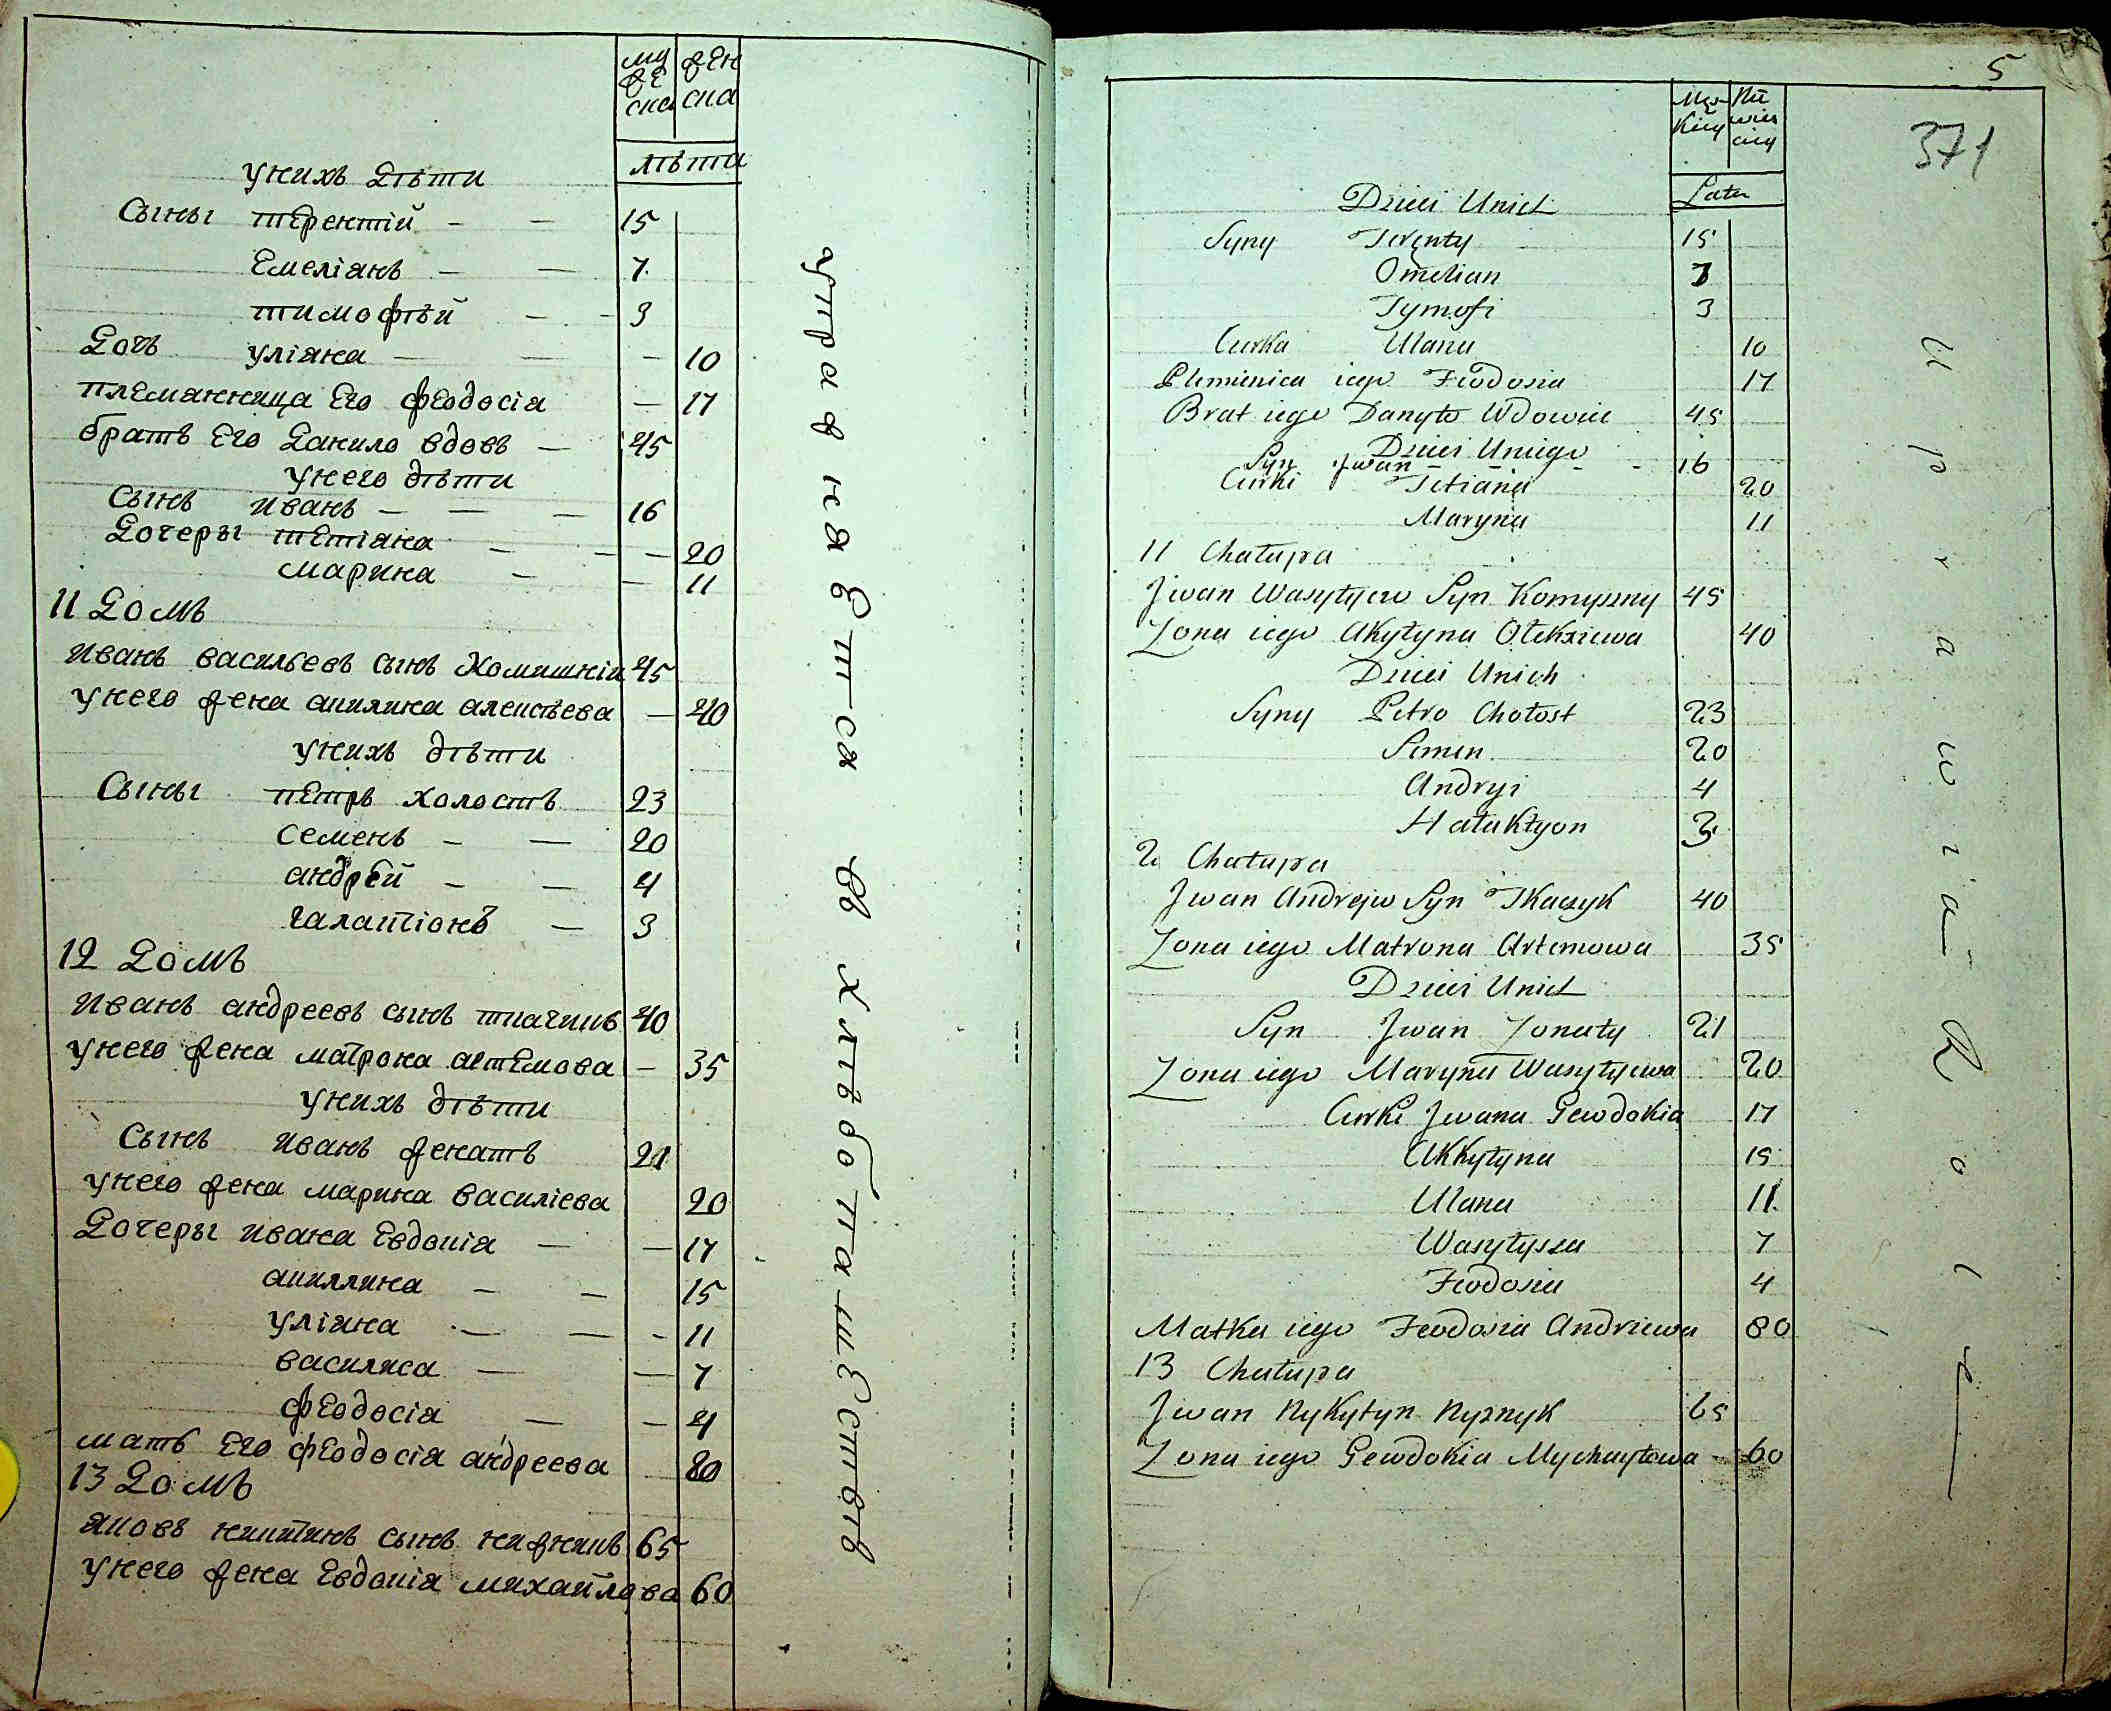 муже
ска
жен
ска
лѣта
унихъ дѣти
Сыны терентій — — 15
Емеліанъ — — 7
тимофѣй — — 3
Дочъ уліяна — — — 10
племянница Его феодосія — 17
братъ Его Данило вдовъ — 45
унего дѣти
Сынъ иванъ — — — 16
Дочеры тетіяна — — — 20
марина — — 11
11 Домъ
иванъ васильевъ сынъ Хомишнін 45
унего жена акилина алексѣева — 40
унихъ дѣти
Сыны петръ холостъ 23
семенъ — — 20
андрей — — 4
галактіонъ — 3
12 Домъ
иванъ андреевъ сынъ ткачикъ 40
унего жена матрона артемова — 35
унихъ дѣти
Сынъ иванъ женатъ 21
унего жена марина василіева 20
Дочеры ивана Евдокія — — 17
акиллина — — 15
уліяна — — - 11
василиса — — 7
феодосія — — 4
мать Его феодосія андреева 80
13 Домъ
яковъ никитинъ сынъ нижникъ 65
унего жена Евдокія михайлова 60
упражняЕтся въ хлѣбопашЕствѣ
5
371
Męz
Kiey
Nie
wies
ciey
Lata
Dzieci Unich
Syny Terenty 15
Omelian 7
Tymofi 3
Curka Ulana 10
Plemienica iego Feodosia 17
Brat iego Danyło Wdowiec 45
Dzieci Uniego
Syn Jwan - - - - 16
Curki Tetiana 20
Maryna 11
11 Chałupa
Jwan Wasylyew Syn Komyszny 45
Zona iego Akylyna Olekziewa 40
Dzieci Unich
Syny Petro Chołost 23
Semen 20
Andryi 4
Hałaktyon 3
2 Chałupa
Jwan Andrejw Syn Tkaczyk 40
Zona iego Matrona Artemowa 35
Dzieci Unich
Syn Jwan Zonaty 21
Zona iego Maryna Wasylyewa 20
Curki Jwana Gewdokia 17
Akkylyna 15
Ulana 11
Wasylyssa 7
Feodosia 4
Matka iego Feodosia Andriewa 80
13 Chałupa
Jwan Nykytyn Nyznyk 65
Zona iego Gewdokia Mychayłowa 60
Uprawia Rolę